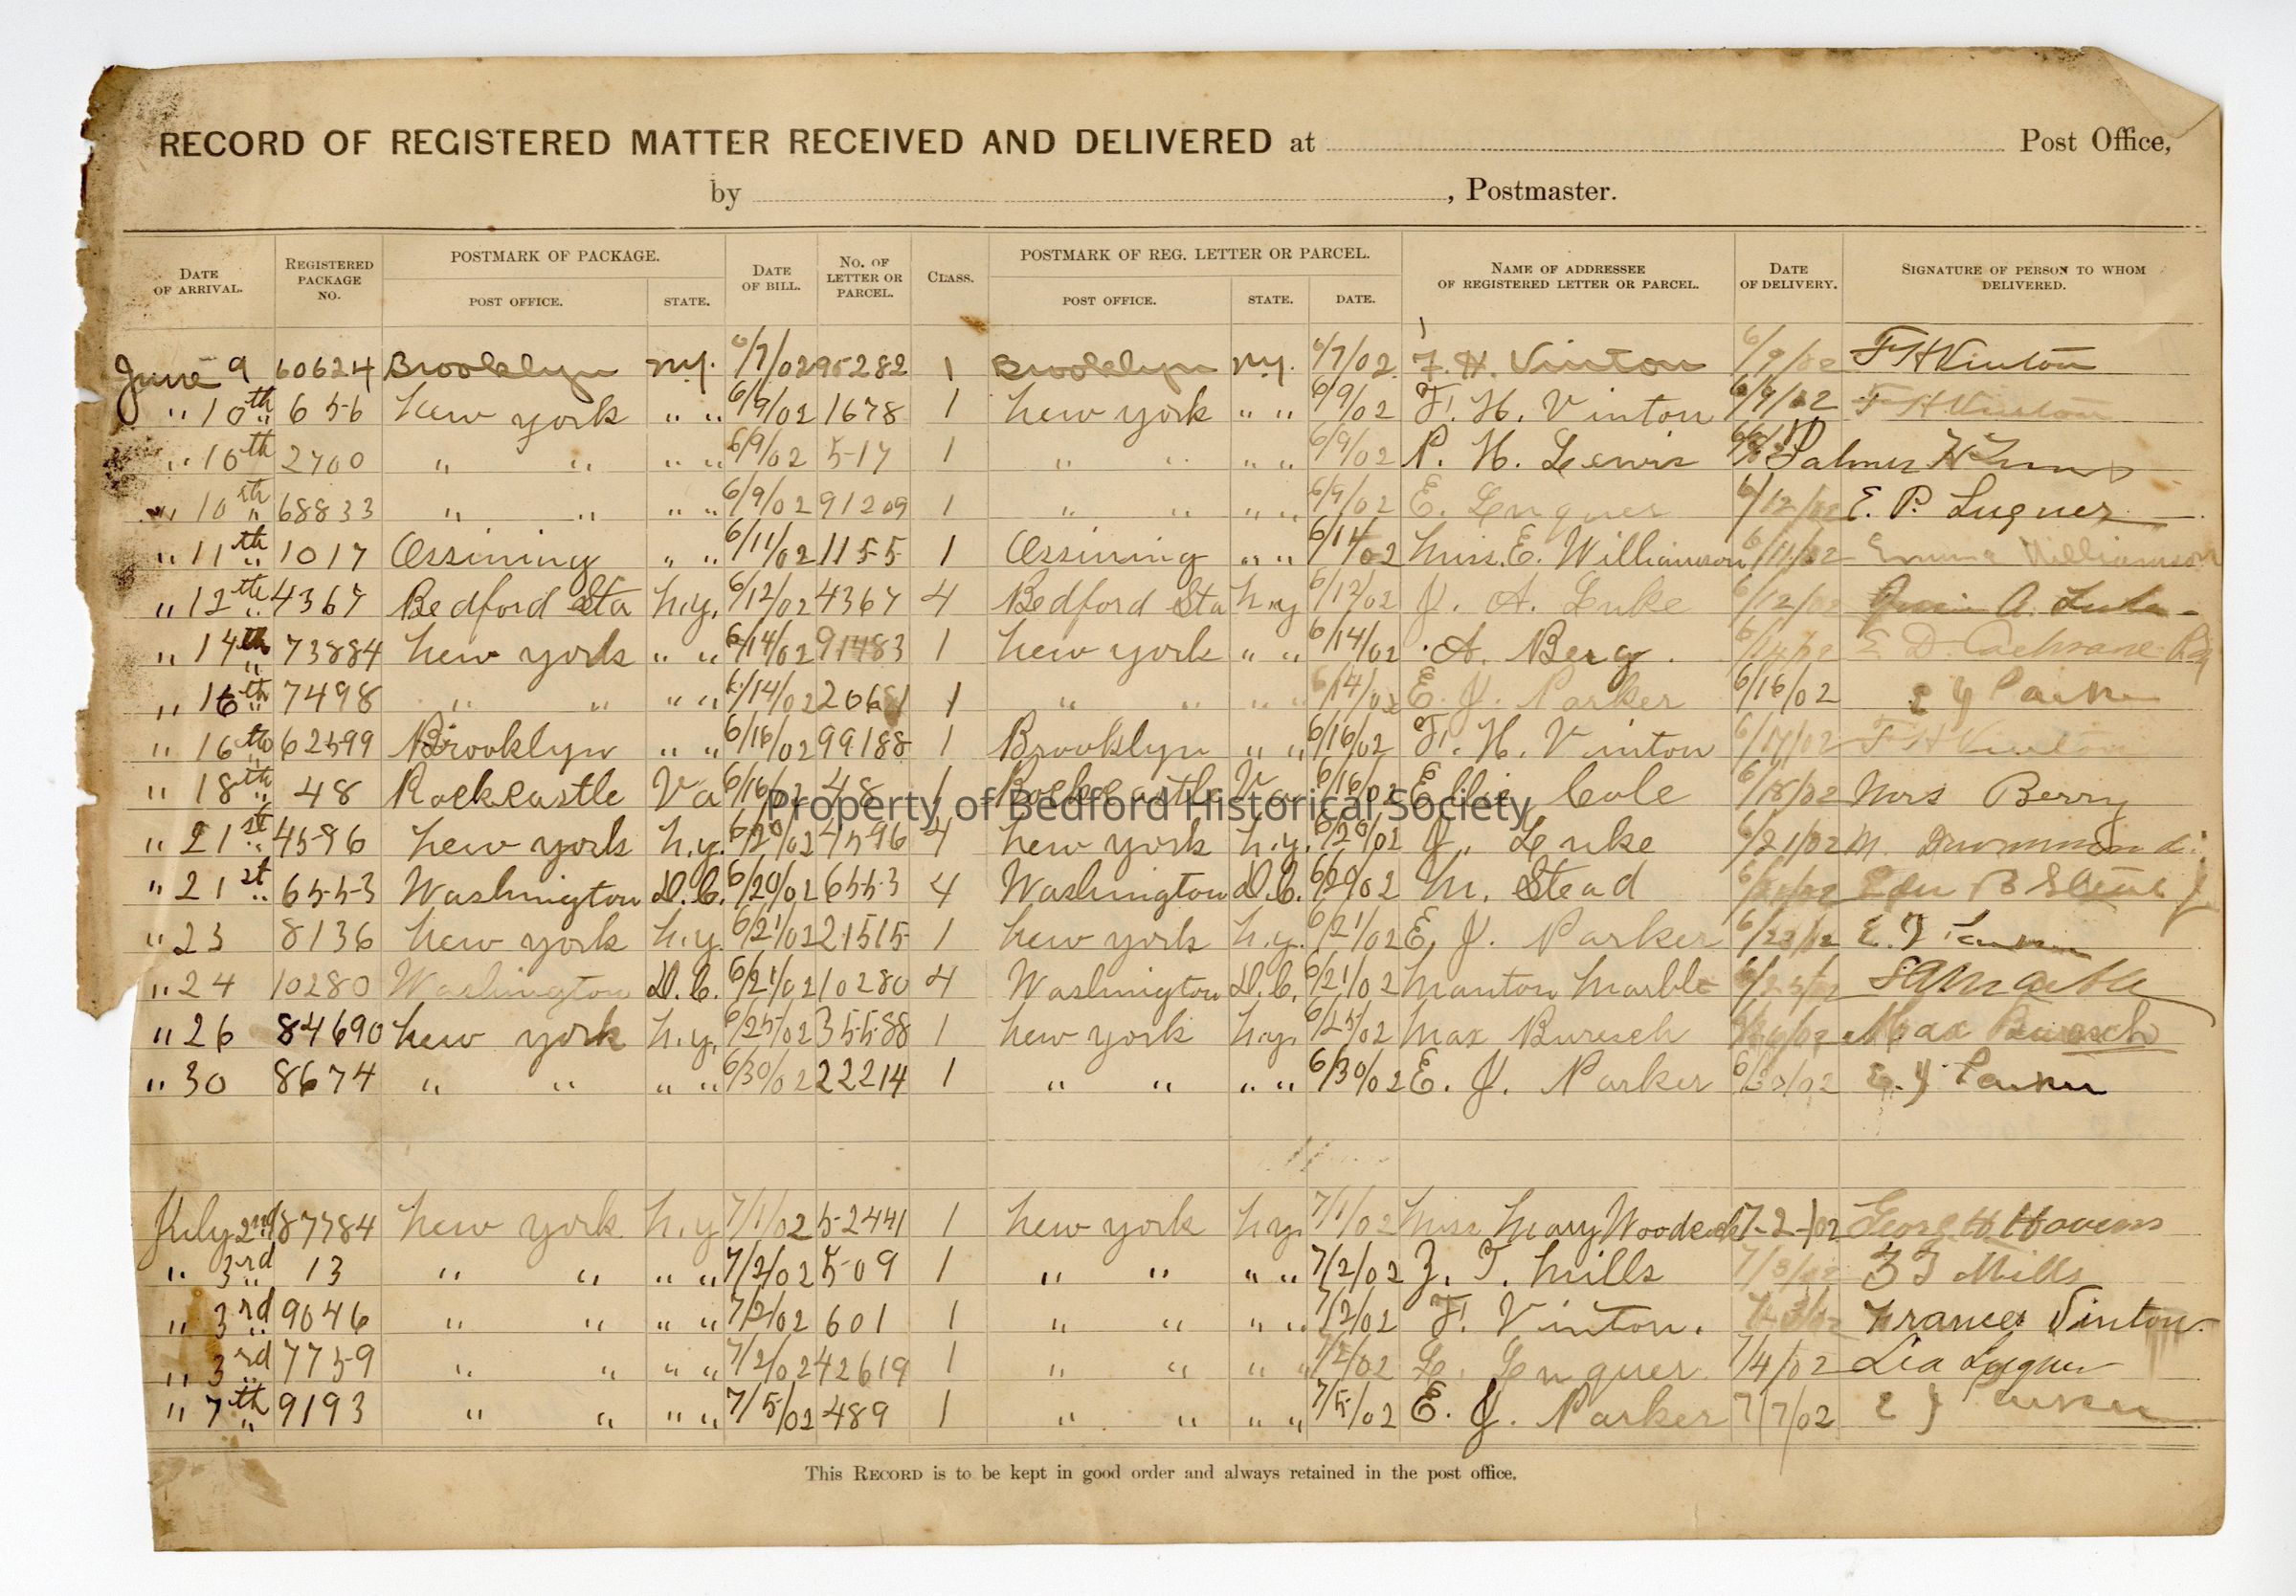 RECORD OF REGISTERED MATTER RECEIVED AND DELIVERED at Post Office,
by , Postmaster.
DATE OF ARRIVAL. REGISTERED PACKAGE NO. POSTMARK OF PACKAGE. POST OFFICE. STATE. DATE OF BILL. NO. OF LETTER OR PARCEL. CLASS. POSTMARK OF REG. LETTER OR PARCEL. POST OFFICE. STATE. DATE. NAME OF ADDRESSEE OF REGISTERED LETTER OR PARCEL. DATE OF DELIVERY. SIGNATURE OF PERSON TO WHOM DELIVERED.
June 9 60624 Brooklyn ny. 6/7/02 95282 1 Brooklyn ny. 6/7/02 F. H. Vinton 6/9/02 F H Vinton
" 10th " 656 new york " " 6/9/02 1678 1 new york " " 6/9/02 F. H. Vinton 6/9/02 F H Vinton
" 10th 2700 " " " " 6/9/02 517 1 " " " " 6/9/02 P. H. Lewis Palmer H
" 10th " 68833 " " " " 6/9/02 91209 1 " " " " 6/9/02 E. Luquer 6/12/02 E. P. Luquer
" 11th " 1017 Ossining " " 6/11/02 1155 1 Ossining " " 6/11/02 Miss. E. Williamson 6/11/02 Emma Williamson
" 12th " 4367 Bedford Sta n.y. 6/12/02 4367 4 Bedford Sta n.y 6/12/02 J. A. Luke 6/12/02 A. Luke
" 14th " 73884 new york " " 6/14/02 91483 1 new york " " 6/14/02 A. Berg. 6/14/02 E D. Cochrane
" 16th 7498 " " " " 6/14/02 20681 1 " " " " 6/14/02 E. J. Parker 6/16/02 E J Parker
" 16th 62599 Brooklyn " " 6/16/02 99188 1 Brooklyn " " 6/16/02 F. H. Vinton 6/17/02 F H Vinton
" 18th " 48 Rockcastle Va 6/16/02 48 1 Rockcastle Va 6/16/02 Ellie Cole 6/18/02 Mrs Berry
Property of Bedford Historical Society
" 21st " 4596 new york n.y. 6/20/02 4596 4 new york n.y. 6/20/02 J. Luke 6/21/02 M. Drummond
" 21st " 6553 Washington D.C. 6/20/02 6553 4 Washington D.C. 6/20/02 M. Stead
" 23 8136 new york n.y. 6/21/02 21515 1 new york n.y. 6/21/02 E. J. Parker 6/23/02 E. J.
" 24 10280 Washington D.C. 6/21/02 10280 4 Washington D.C. 6/21/02 Manton Marble 6/25/02 Marble
" 26 84690 new york n.y. 6/25/02 35588 1 new york n.y. 6/25/02 Max Buresch Max Buresch
" 30 8674 " " " " 6/30/02 22214 1 " " " " 6/30/02 E. J. Parker 6/30/02 E. J. Parker
July 2nd 87784 new york n.y 7/1/02 52441 1 new york n.y. 7/1/02 Miss Mary Woodcock 7-2-/02 George H Havens
" 3rd " 13 " " " " 7/2/02 509 1 " " " " 7/2/02 Z. T. Mills 7/3/02 Z T Mills
" 3rd " 9046 " " " " 7/2/02 601 1 " " " " 7/2/02 F. Vinton. 7/3/02 Frances Vinton
" 3rd " 7759 " " " " 7/2/02 42619 1 " " " " 7/2/02 L. Luquer 7/4/02 Lea Luquer
" 7th " 9193 " " " " 7/5/02 489 1 " " " " 7/5/02 E. J. Parker 7/7/02 E J Parker
This RECORD is to be kept in good order and always retained in the post office.